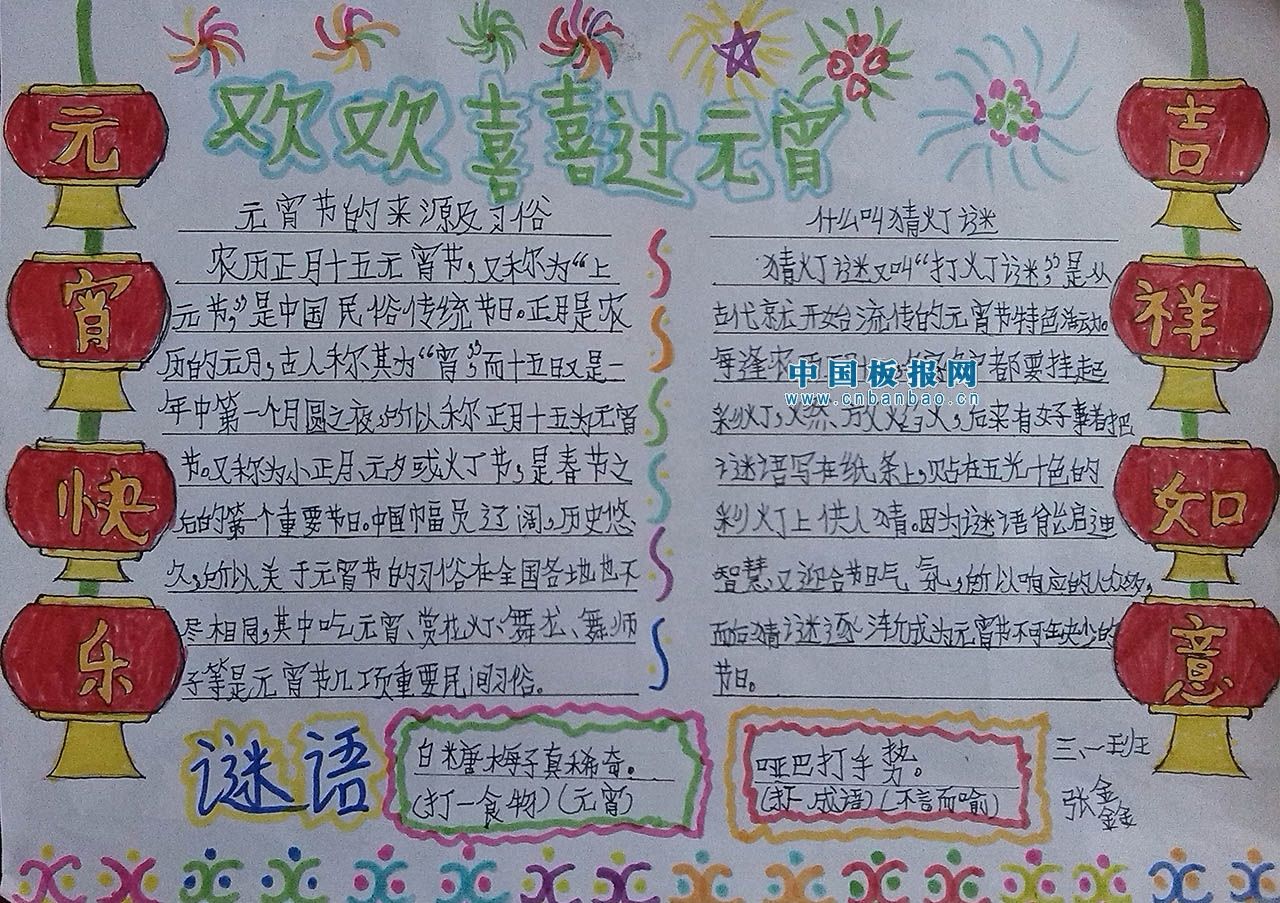 欢欢喜喜过元宵
元
宵
快
乐
元宵节的来源及习俗
农历正月十五元宵节，又称为“上
元节，”是中国民俗传统节日。正月是农
历的元月，古人称其为“宵，”而十五日又是一
年中第一个月圆之夜，所以称正月十五为元宵
节。又称为小正月、元夕或灯节，是春节之
后的第一个重要节日。中国幅员辽阔，历史悠
久，所以关于元宵节的习俗在全国各地也不
尽相同，其中吃元宵、赏花灯、舞龙、舞师
子等是元宵节几项重要民间习俗。
什么叫猜灯谜
猜灯谜又叫“打灯谜，”是从
古代就开始流传的元宵节特色活动。
每逢农历正月十 都要挂起
彩灯，燃放焰火，后来有好事者把
谜语写在纸条上，贴在五光十色的
彩灯上供人猜。因为谜语能启迪
智慧又迎合节日气氛，所以响应的人众多，
而后猜谜逐渐成为元宵节不可缺少的
节日。
中国板报网
www.cnbanbao.cn
吉
祥
如
意
谜语
白米唐梅子真稀奇。
(打一食物)(元宵)
哑巴打手势。
(打一成语)(不言而喻)
三、一班
张鑫鑫